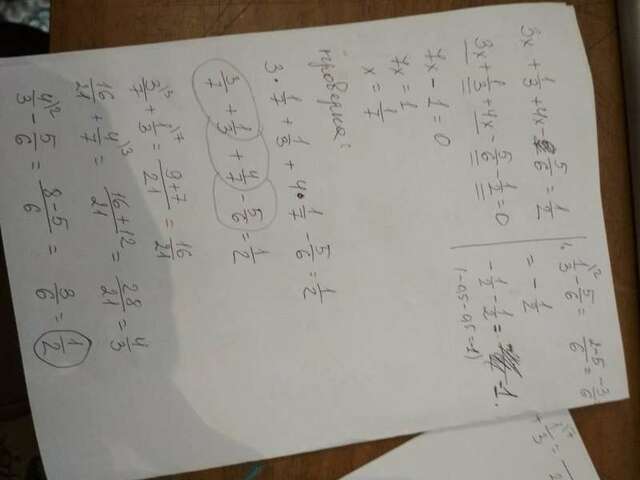 3x + 1/3 + 4x - 5/6 = 1/2
3x + 1/3 + 4x - 5/6 - 1/2 = 0
7x - 1 = 0
7x = 1
x = 1/7
проверка:
3 · 1/7 + 1/3 + 4 · 1/7 - 5/6 = 1/2
3/7 + 1/3 + 4/7 - 5/6 = 1/2
3\3/7 + 1\7/3 = 9+7/21 = 16/21
16/21 + 4\3/7 = 16+12/21 = 28/21 = 4/3
4\2/3 - 5/6 = 8-5/6 = 3/6 = 1/2
1\2/3 - 5/6 = 2-5/6 = -3/6
= -1/2
-1/2 - 1/2 = -1.